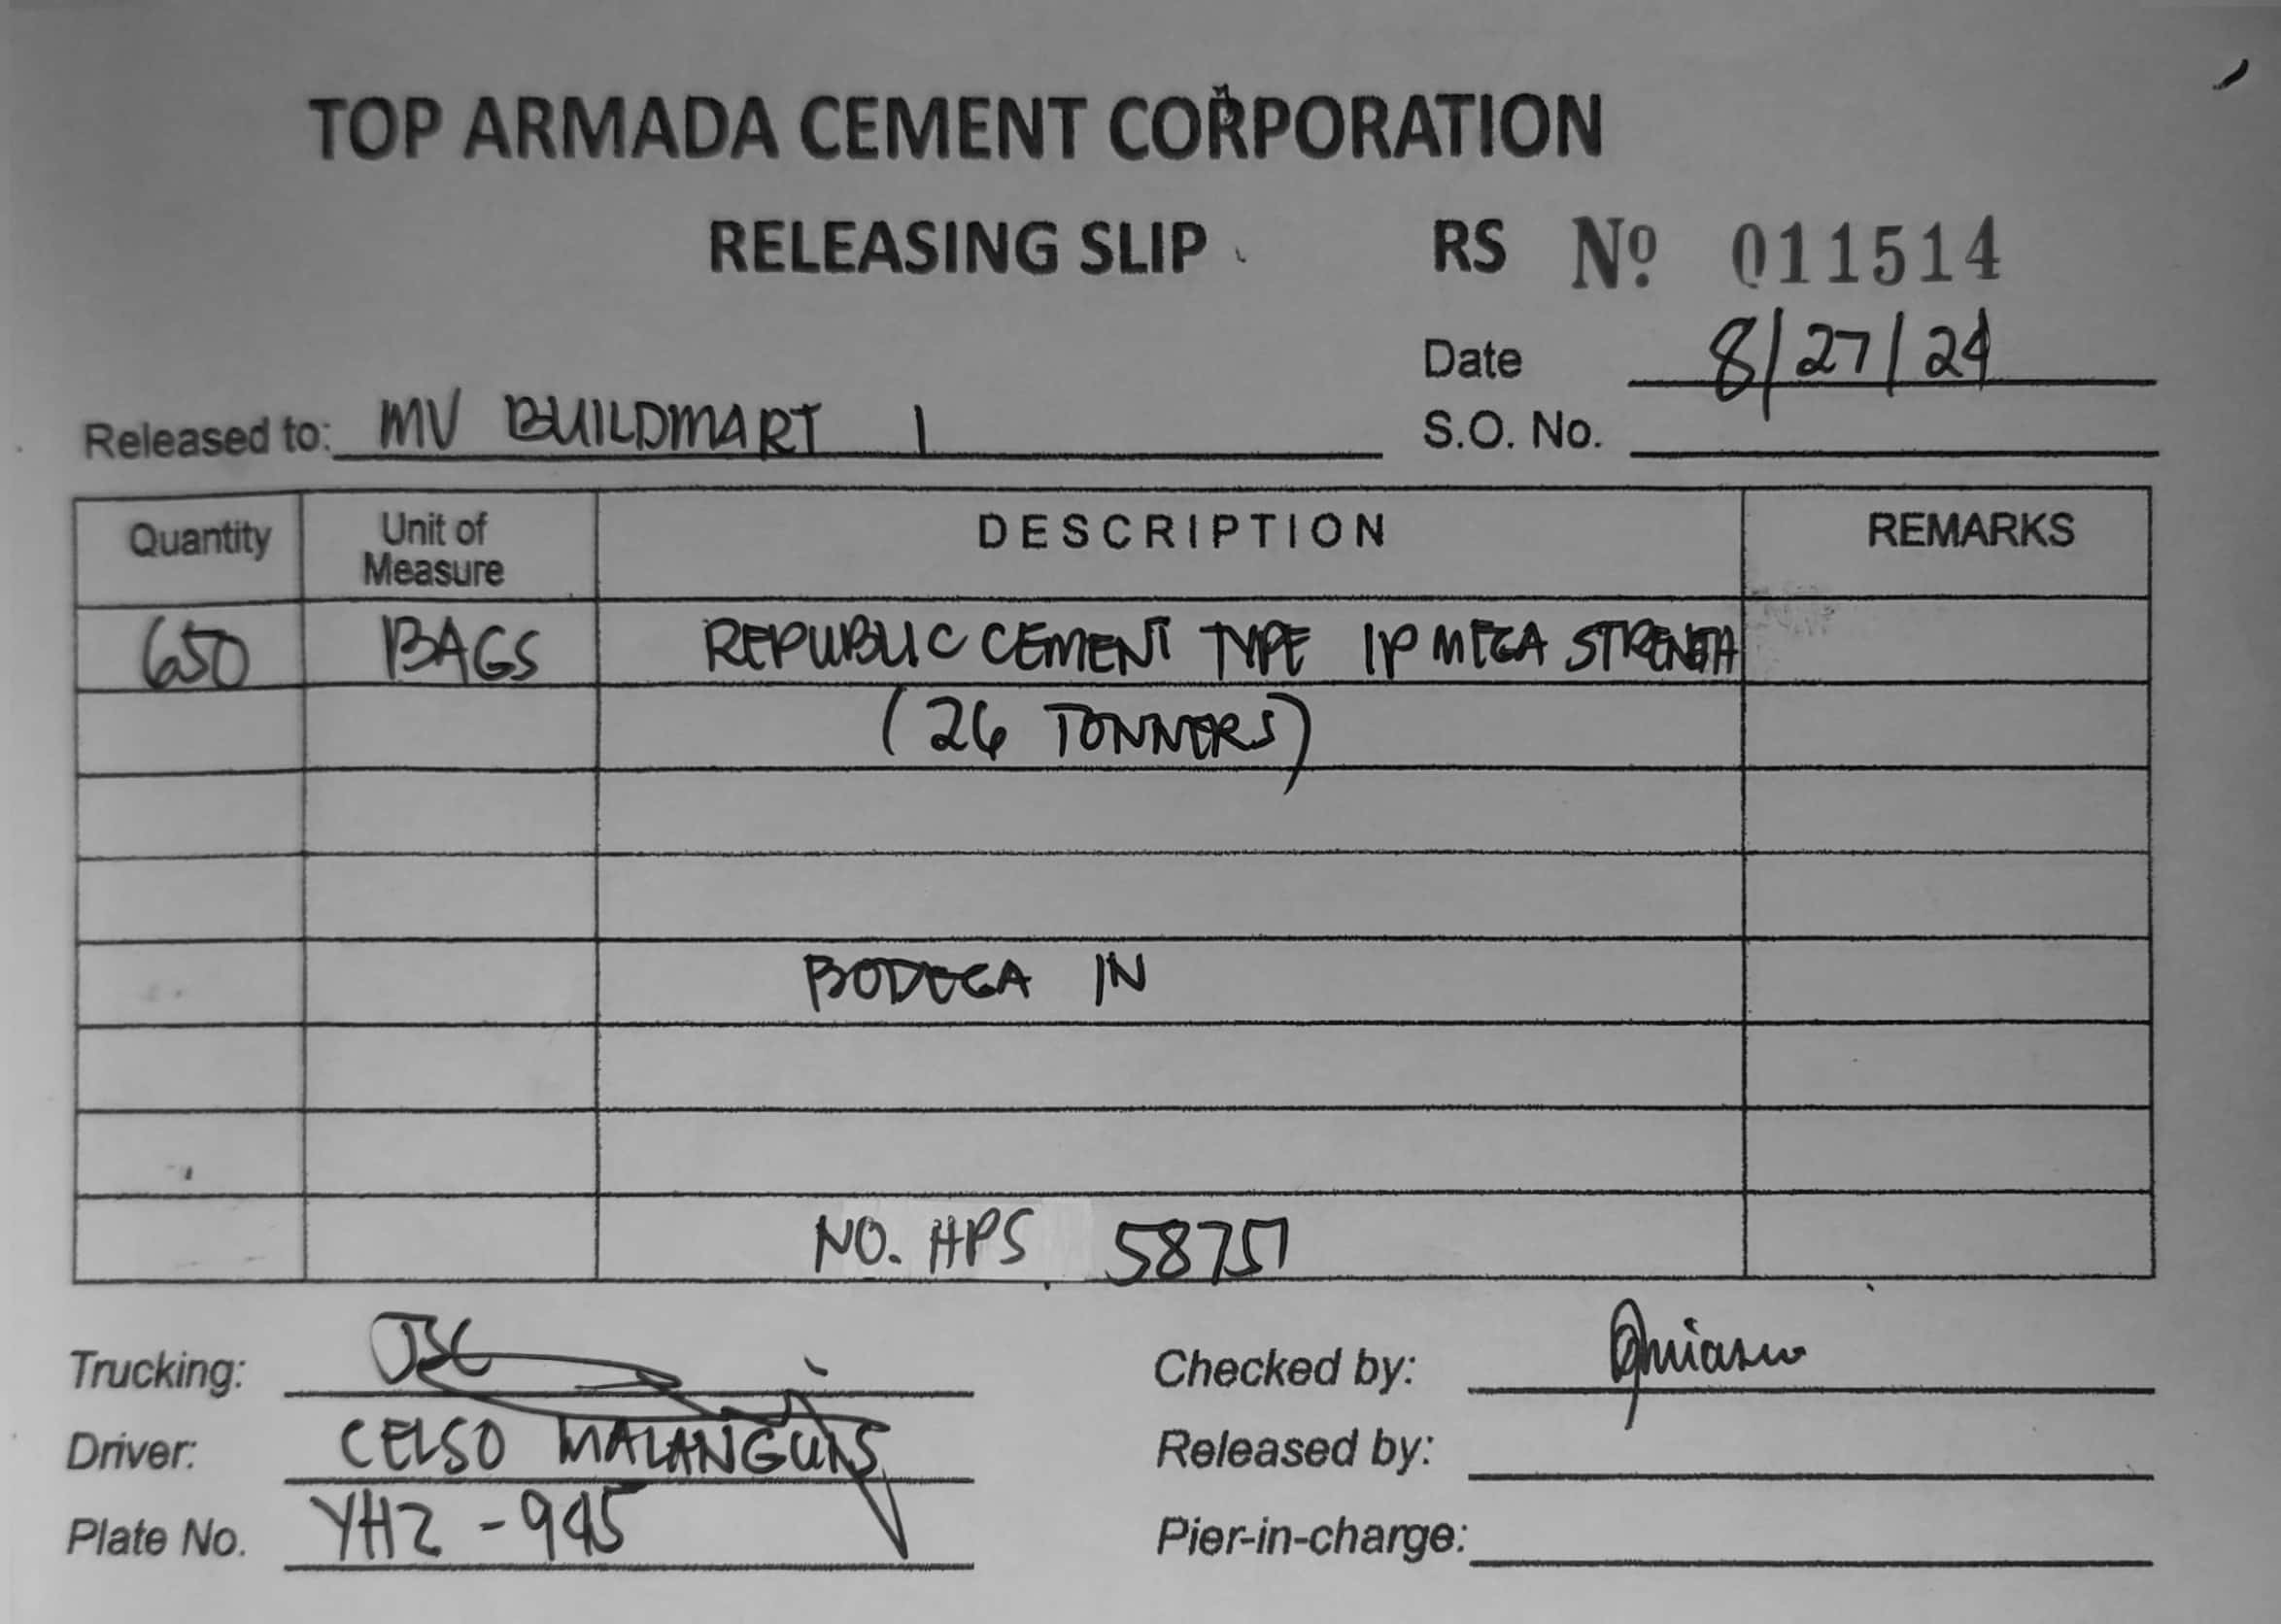 TOP ARMADA CEMENT CORPORATION
RELEASING SLIP RS Nº 011514
Date 8/27/24
Released to: MV BUILDMART 1 S.O. No.
Quantity Unit of Measure DESCRIPTION REMARKS
650 BAGS REPUBLIC CEMENT TYPE 1P MEGA STRENGTH
(26 TONNERS)
BODEGA IN
NO. HPS 58751
Trucking: JSC Checked by:
Driver: CELSO MALANGUIS Released by:
Plate No. YHZ - 945 Pier-in-charge: